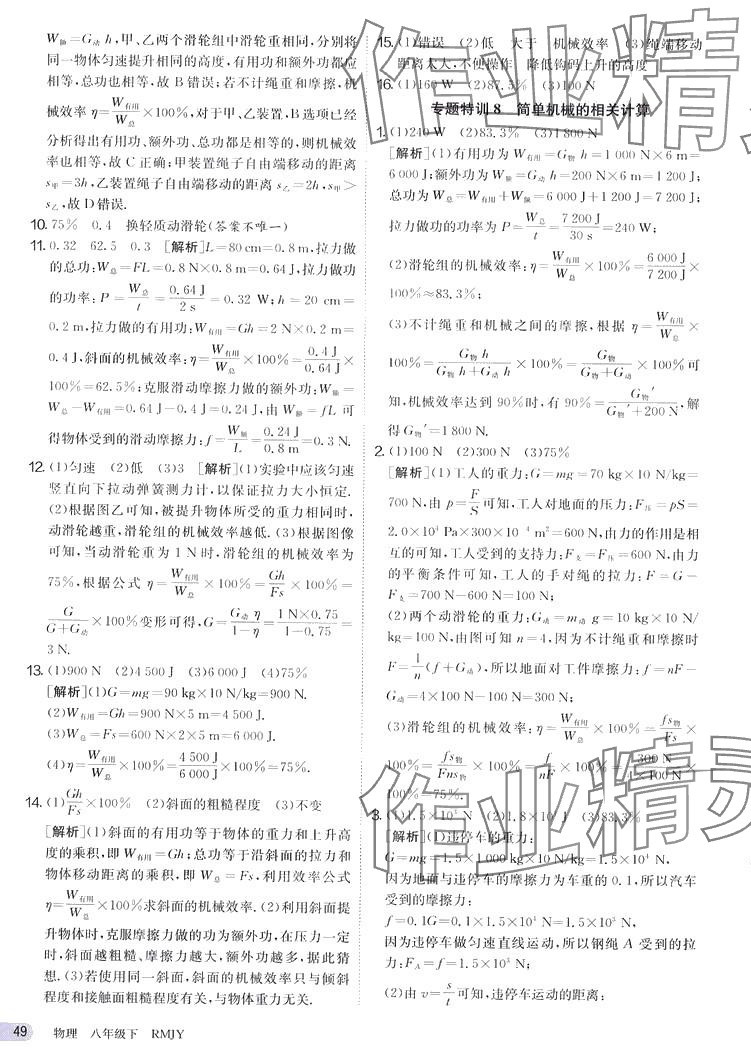 W额=G动 h,甲、乙两个滑轮组中滑轮重相同,分别将
同一物体匀速提升相同的高度,有用功和额外功都应
相等,总功也相等,故 B 错误;若不计绳重和摩擦,机
械效率 η=W有用/W总×100%,对于甲、乙装置,B选项已经
分析得出有用功、额外功、总功都是相等的,则机械效
率相等,故 C 正确;甲装置绳子自由端移动的距离
s甲=3h,乙装置绳子自由端移动的距离 s乙=2h,s甲>
s乙,故 D 错误.
10. 75% 0.4 换轻质动滑轮(答案不唯一)
11. 0.32 62.5 0.3 [解析]L=80 cm=0.8 m,拉力做
的总功:W总=FL=0.8 N×0.8 m=0.64 J,拉力做功
的功率:P=W总/t=0.64 J/2 s=0.32 W;h=20 cm=
0.2 m,拉力做的有用功:W有用=Gh=2 N×0.2 m=
0.4 J,斜面的机械效率:η=W有用/W总×100%=0.4 J/0.64 J×
100%=62.5%;克服滑动摩擦力做的额外功:W额=
W总-W有用=0.64 J-0.4 J=0.24 J,由 W额=fL 可
得物体受到的滑动摩擦力:f=W额/L=0.24 J/0.8 m=0.3 N.
12. (1)匀速 (2)低 (3)3 [解析](1)实验中应该匀速
竖直向下拉动弹簧测力计,以保证拉力大小恒定.
(2)根据图乙可知,被提升物体所受的重力相同时,
动滑轮越重,滑轮组的机械效率越低. (3)根据图像
可知,当动滑轮重为 1 N 时,滑轮组的机械效率为
75%,根据公式 η=W有用/W总×100%=Gh/Fs×100%=
G/(G+G动)×100%变形可得,G=G动 η/(1-η)=1 N×0.75/(1-0.75)=
3 N.
13. (1)900 N (2)4 500 J (3)6 000 J (4)75%
[解析](1)G=mg=90 kg×10 N/kg=900 N.
(2)W有用=Gh=900 N×5 m=4 500 J.
(3)W总=Fs=600 N×2×5 m=6 000 J.
(4)η=W有用/W总×100%=4 500 J/6 000 J×100%=75%.
14. (1)Gh/Fs×100% (2)斜面的粗糙程度 (3)不变
[解析](1)斜面的有用功等于物体的重力和上升高
度的乘积,即 W有用=Gh;总功等于沿斜面的拉力与
物体移动距离的乘积,即 W总=Fs,利用效率公式
η=W有用/W总×100%求斜面的机械效率. (2)利用斜面提
升物体时,克服摩擦力做的功为额外功,在压力一定
时,斜面越粗糙、摩擦力越大,额外功越多,据此猜
想. (3)若使用同一斜面,斜面的机械效率只与倾斜
程度和接触面粗糙程度有关,与物体重力无关.
49 物理 八年级下 RMJY
15. (1)错误 (2)低 大于 机械效率 (3)绳端移动
距离太大,不便操作 降低钩码上升的高度
16. (1)160 W (2)87.5% (3)100 N
专题特训8 简单机械的相关计算
1. (1)240 W (2)83.3% (3)1 800 N
[解析](1)有用功为 W有用=G物 h=1 000 N×6 m=
6 000 J;额外功为 W额=G动 h=200 N×6 m=1 200 J;
总功为 W总=W有用+W额=6 000 J+1 200 J=7 200 J;
拉力做功的功率为 P=W总/t=7 200 J/30 s=240 W;
(2)滑轮组的机械效率:η=W有用/W总×100%=6 000 J/7 200 J×
100%≈83.3%;
(3)不计绳重和机械之间的摩擦,根据 η=W有用/W总×
100%=G物 h/(G物 h+G动 h)×100%=G物/(G物+G动)×100%可
知,机械效率达到 90%时,有 90%=G物′/(G物′+200 N),解
得 G物′=1 800 N.
2. (1)100 N (2)300 N (3)75%
[解析](1)工人的重力:G=mg=70 kg×10 N/kg=
700 N,由 p=F/S可知,工人对地面的压力:F压=pS=
2.0×10⁴ Pa×300×10⁻⁴ m²=600 N,由力的作用是相
互的可知,工人受到的支持力:F支=F压=600 N,由力
的平衡条件可知,工人的手对绳的拉力:F=G-
F支=700 N-600 N=100 N;
(2)两个动滑轮的重力:G动=m动 g=10 kg×10 N/
kg=100 N,由图可知 n=4,因为不计绳重和摩擦时
F=1/n(f+G动),所以地面对工件摩擦力:f=nF-
G动=4×100 N-100 N=300 N;
(3)滑轮组的机械效率:η=W有用/W总×100%=fs物/Fs×
100%=fs物/Fns物×100%=f/nF×100%=300 N/(4×100 N)×
100%=75%.
3. (1)1.5×10³ N (2)1.8×10⁴ J (3)83.3%
[解析](1)违停车的重力:
G=mg=1.5×1 000 kg×10 N/kg=1.5×10⁴ N,
因为地面与违停车的摩擦力为车重的 0.1,所以汽车
受到的摩擦力:
f=0.1G=0.1×1.5×10⁴ N=1.5×10³ N,
因为违停车做匀速直线运动,所以钢绳 A 受到的拉
力:FA=f=1.5×10³ N;
(2)由 v=s/t可知,违停车运动的距离:
作业精灵
作业精灵